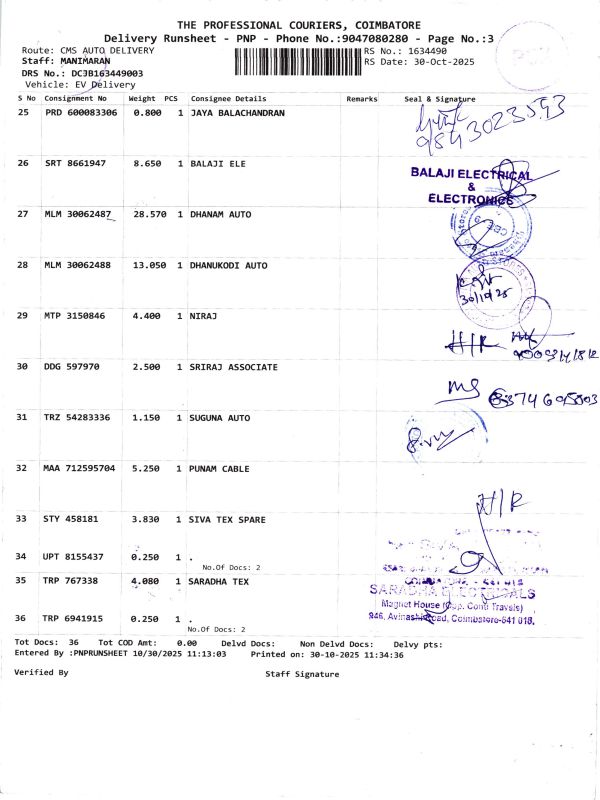 THE PROFESSIONAL COURIERS, COIMBATORE
Delivery Runsheet - PNP - Phone No.:9047080280 - Page No.:3
Route: CMS AUTO DELIVERY
RS No.: 1634490
Staff: MANIMARAN
RS Date: 30-Oct-2025
DRS No.: DC3B163449003
Vehicle: EV Delivery
S No Consignment No Weight PCS Consignee Details Remarks Seal & Signature
25 PRD 600083306 0.800 1 JAYA BALACHANDRAN
26 SRT 8661947 8.650 1 BALAJI ELE
BALAJI ELECTRICAL
&
ELECTRONICS
27 MLM 30062487 28.570 1 DHANAM AUTO
28 MLM 30062488 13.050 1 DHANUKODI AUTO
30/10/25
29 MTP 3150846 4.400 1 NIRAJ
H/R
30 DDG 597970 2.500 1 SRIRAJ ASSOCIATE
31 TRZ 54283336 1.150 1 SUGUNA AUTO
32 MAA 712595704 5.250 1 PUNAM CABLE
H/R
33 STY 458181 3.830 1 SIVA TEX SPARE
34 UPT 8155437 0.250 1 .
No.Of Docs: 2
35 TRP 767338 4.080 1 SARADHA TEX
SARADHA ELECTRICALS
Magnet House (Opp. Conti Travels)
946, Avinashi Road, Coimbatore-641 018.
36 TRP 6941915 0.250 1 .
No.Of Docs: 2
Tot Docs: 36 Tot COD Amt: 0.00 Delvd Docs: Non Delvd Docs: Delvy pts:
Entered By :PNPRUNSHEET 10/30/2025 11:13:03 Printed on: 30-10-2025 11:34:36
Verified By Staff Signature